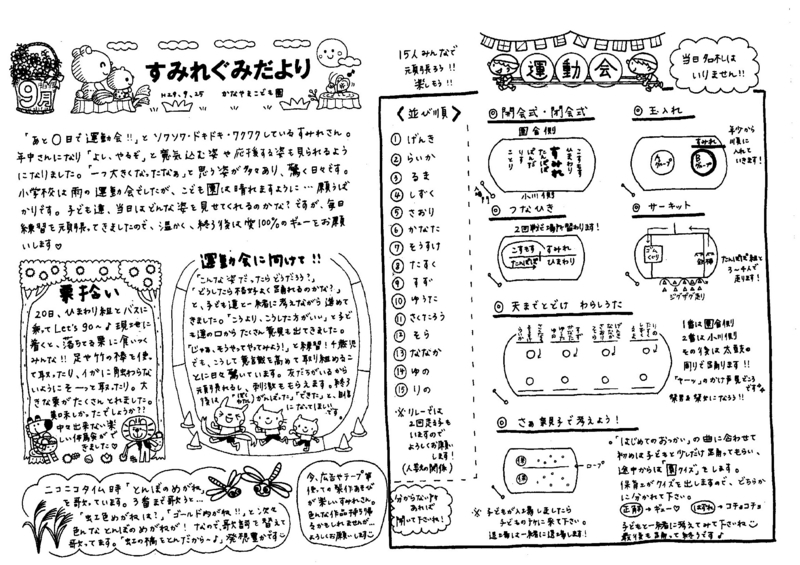 9月
すみれぐみだより
H29.9.25 かなやまこども園
「あと〇日で運動会!!」とソワソワ・ドキドキ・ワクワクしているすみれさん。
年中さんになり「よし、やるぞ」と意気込む姿や応援する姿も見られるよう
になりました。「一つ大きくなったなぁ」と思う姿が多々あり、驚く日々です。
小学校は雨の運動会でしたが、こども園は晴れますように…願うば
かりです。子ども達、当日はどんな姿を見せてくれるのかな?ですが、毎日
練習を頑張ってきましたので、温かく、終了後は愛100%のギューとお願
いします♡
栗拾い
20日、ひまわり組とバスに
乗ってLet's go〜♪現地に
着くと、落ちてる栗に食いつく
みんな!!足や竹の棒を使っ
て取ったり、イガに負けない
ようにそーっと取ったり。大
きな栗がたくさんとれました。
美味しかったでしょうか??
中々出来ない楽
しい体験がで
きました♡
運動会に向けて!!
「こんな姿だったらどうだろう?」
「どうしたら格好よく踊れるのかな?」
と、子ども達と一緒に考えながら進めて
きました。「こうより、こうした方がいい」と子ど
も達の口からたくさん意見も出てきました。
「じゃぁ、そうやってやってみよう!」と練習!4歳児
でも、こうして意識を高めて取り組めるこ
とに日々驚いています。友だちがいるから
元頑張れるし、刺激ももらえます。終了
後は「がんばった」「できた」と、自信
になってほしい
です。
ニコニコタイム時「とんぼのめがね」
を歌っています。3番まで歌うと…
「虹色めがねは?」「ゴールドめがね!!」と、次々
色んなとんぼのめがねが!なので、歌詞を替えて
歌ってます。「虹の橋をとんだから〜♪」発想豊かです
今、広告やテープ等
使っての製作あそび
が楽しいすみれさん。
色んな作品持ち帰
るかもしれませんが…
よろしくお願いします
15人みんなで
頑張ろう!!
楽しもう!!
運動会
当日名札は
いりません!!
〈並び順〉
① げんき
② らいか
③ るま
④ しずく
⑤ さおり
⑥ かなた
⑦ そうすけ
⑧ たすく
⑨ すず
⑩ ゆうた
⑪ さくたろう
⑫ そら
⑬ ななか
⑭ ゆの
⑮ りの
※リレーでは
2回走る子も
いますので
よろしくお願い
します!
(人数の関係)
分からない所
あれば
聞いて下さいね!
◎ 開会式・閉会式
園舎側
こすもす
ひまわり
すみれ
たんぽぽ
ことり
小川側
◎ 玉入れ
すみれ
Aグループ
Bグループ
年少から
順に
入れて
いきます!
◎ つなひき
2回戦で場所を替わります!
こすもす
すみれ
たんぽぽ
ひまわり
◎ サーキット
ゴムくぐり
鉄棒
ジグザグ走り
たんぽぽ組と
3〜4人で
走ります!
◎ 天までとどけ わらしうた
1番は園舎側
2番は小川側
その後は太鼓の
周りで踊ります!
◎ さぁ親子で考えよう!
ロープ
※ 子どもが入場しましたら
子どもの所に来て下さい。
退場は一緒に退場します!
・「はじめてのおつかい」の曲に合わせて
初めは子どもと少しだけ踊ってもらい、
途中からは園クイズをします。
保育士がクイズを出しますので、どちらか
に分かれて下さい。
正解→ギュー♡ はずれ→コチョコチョ
子どもと一緒に考えてみて下さいね
最後も踊って終了です♪